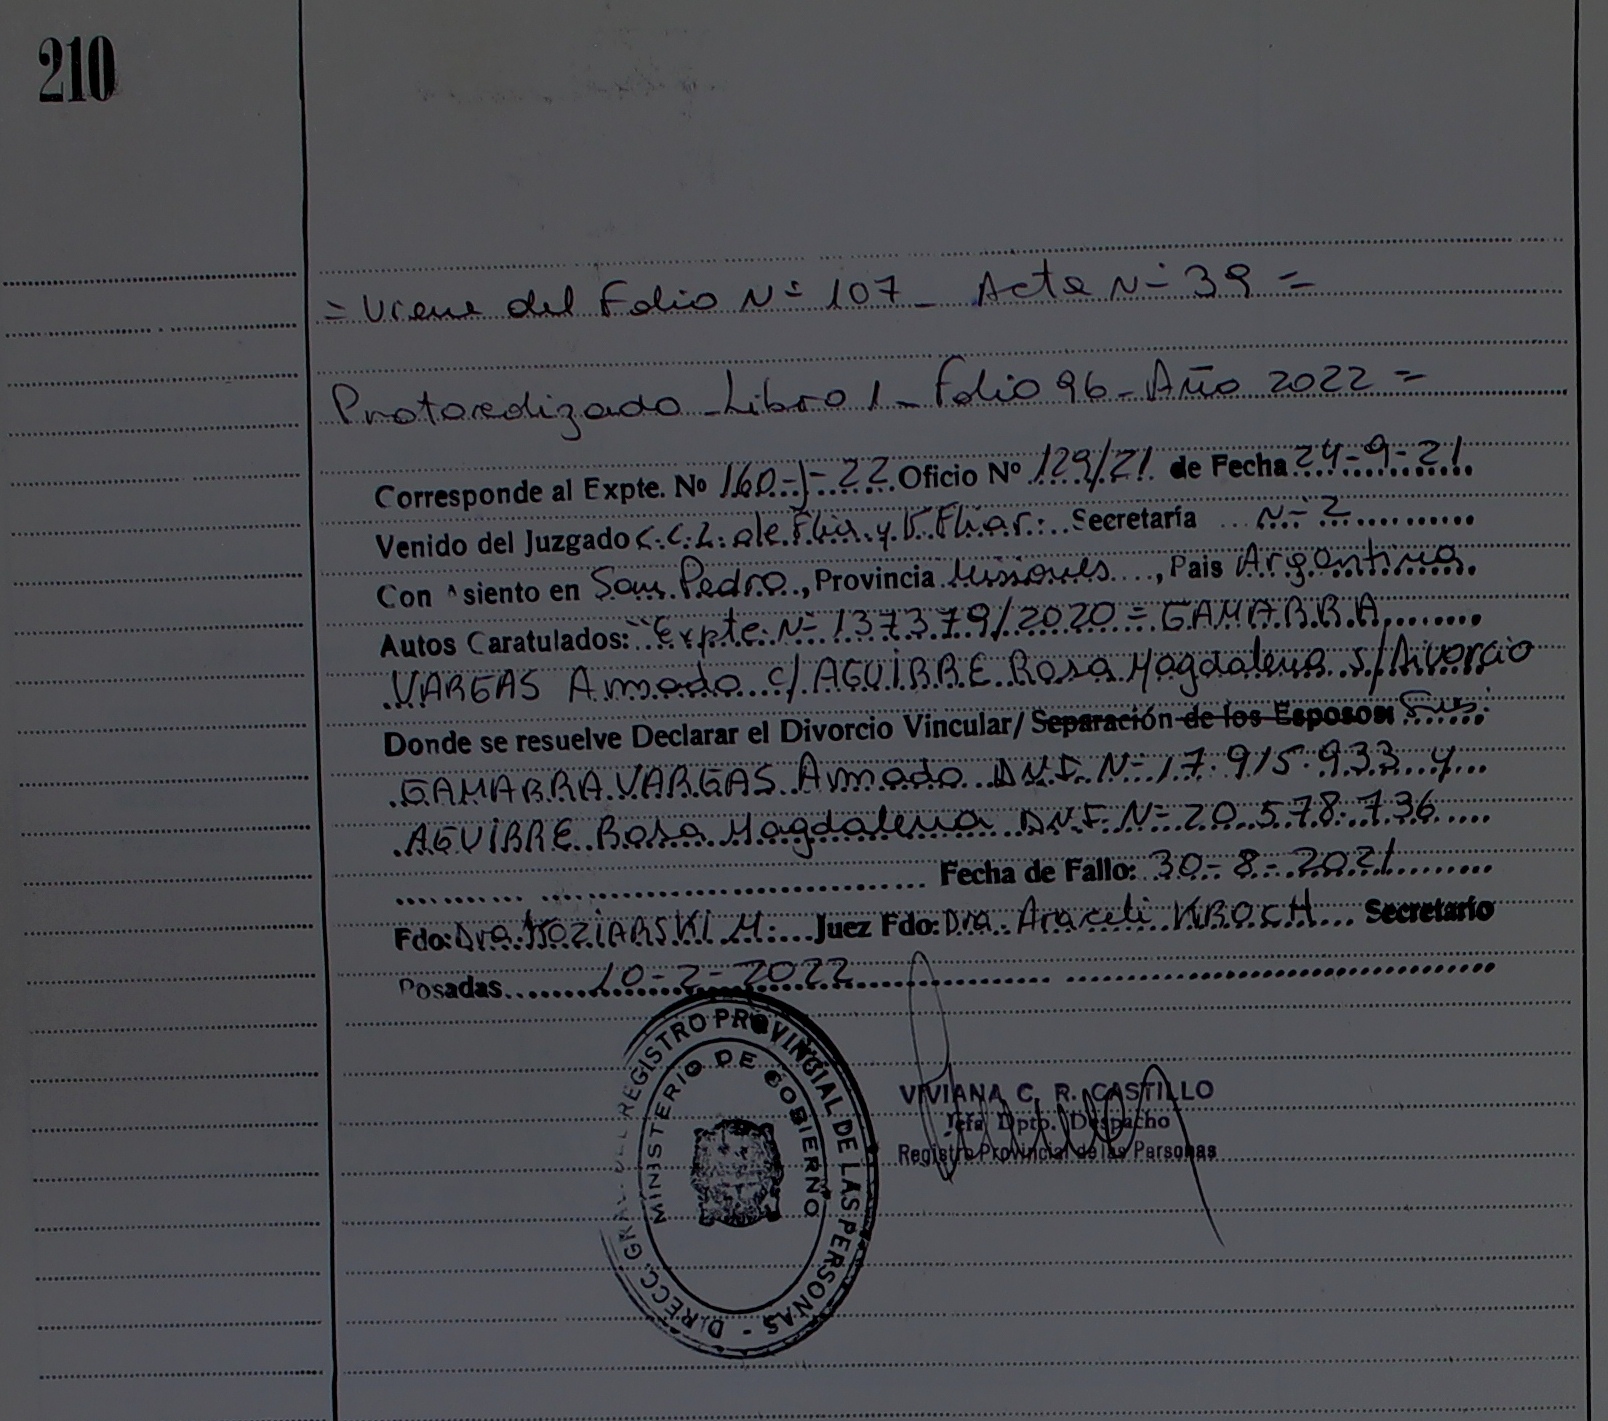 210
= Viene del Folio Nº 107 - Acta Nº 39 =
Protocolizado - Libro 1 - Folio 96 - Año 2022 =
Corresponde al Expte. Nº 160-J-22 Oficio Nº 129/21 de Fecha 24-9-21
Venido del Juzgado C.C.L. de Flia. y V. Fliar. Secretaría Nº 2
Con Asiento en San Pedro, Provincia Misiones, Pais Argentina
Autos Caratulados: "Expte. Nº 137379/2020 = GAMARRA
VARGAS Amado c/ AGUIRRE Rosa Magdalena s/ Divorcio
Donde se resuelve Declarar el Divorcio Vincular/ Separación de los Esposos:
GAMARRA VARGAS Amado D.N.I. Nº 17.915.933 y
AGUIRRE Rosa Magdalena D.N.I. Nº 20.578.736
Fecha de Fallo: 30-8-2021
Fdo: Dra. KOZIARSKI M. Juez Fdo: Dra. Araceli KROCH Secretario
Posadas 10-2-2022
DIRECC. GRAL. DEL REGISTRO PROVINCIAL DE LAS PERSONAS -
MINISTERIO DE GOBIERNO
VIVIANA C. R. CASTILLO
Jefa Dpto. Despacho
Registro Provincial de las Personas